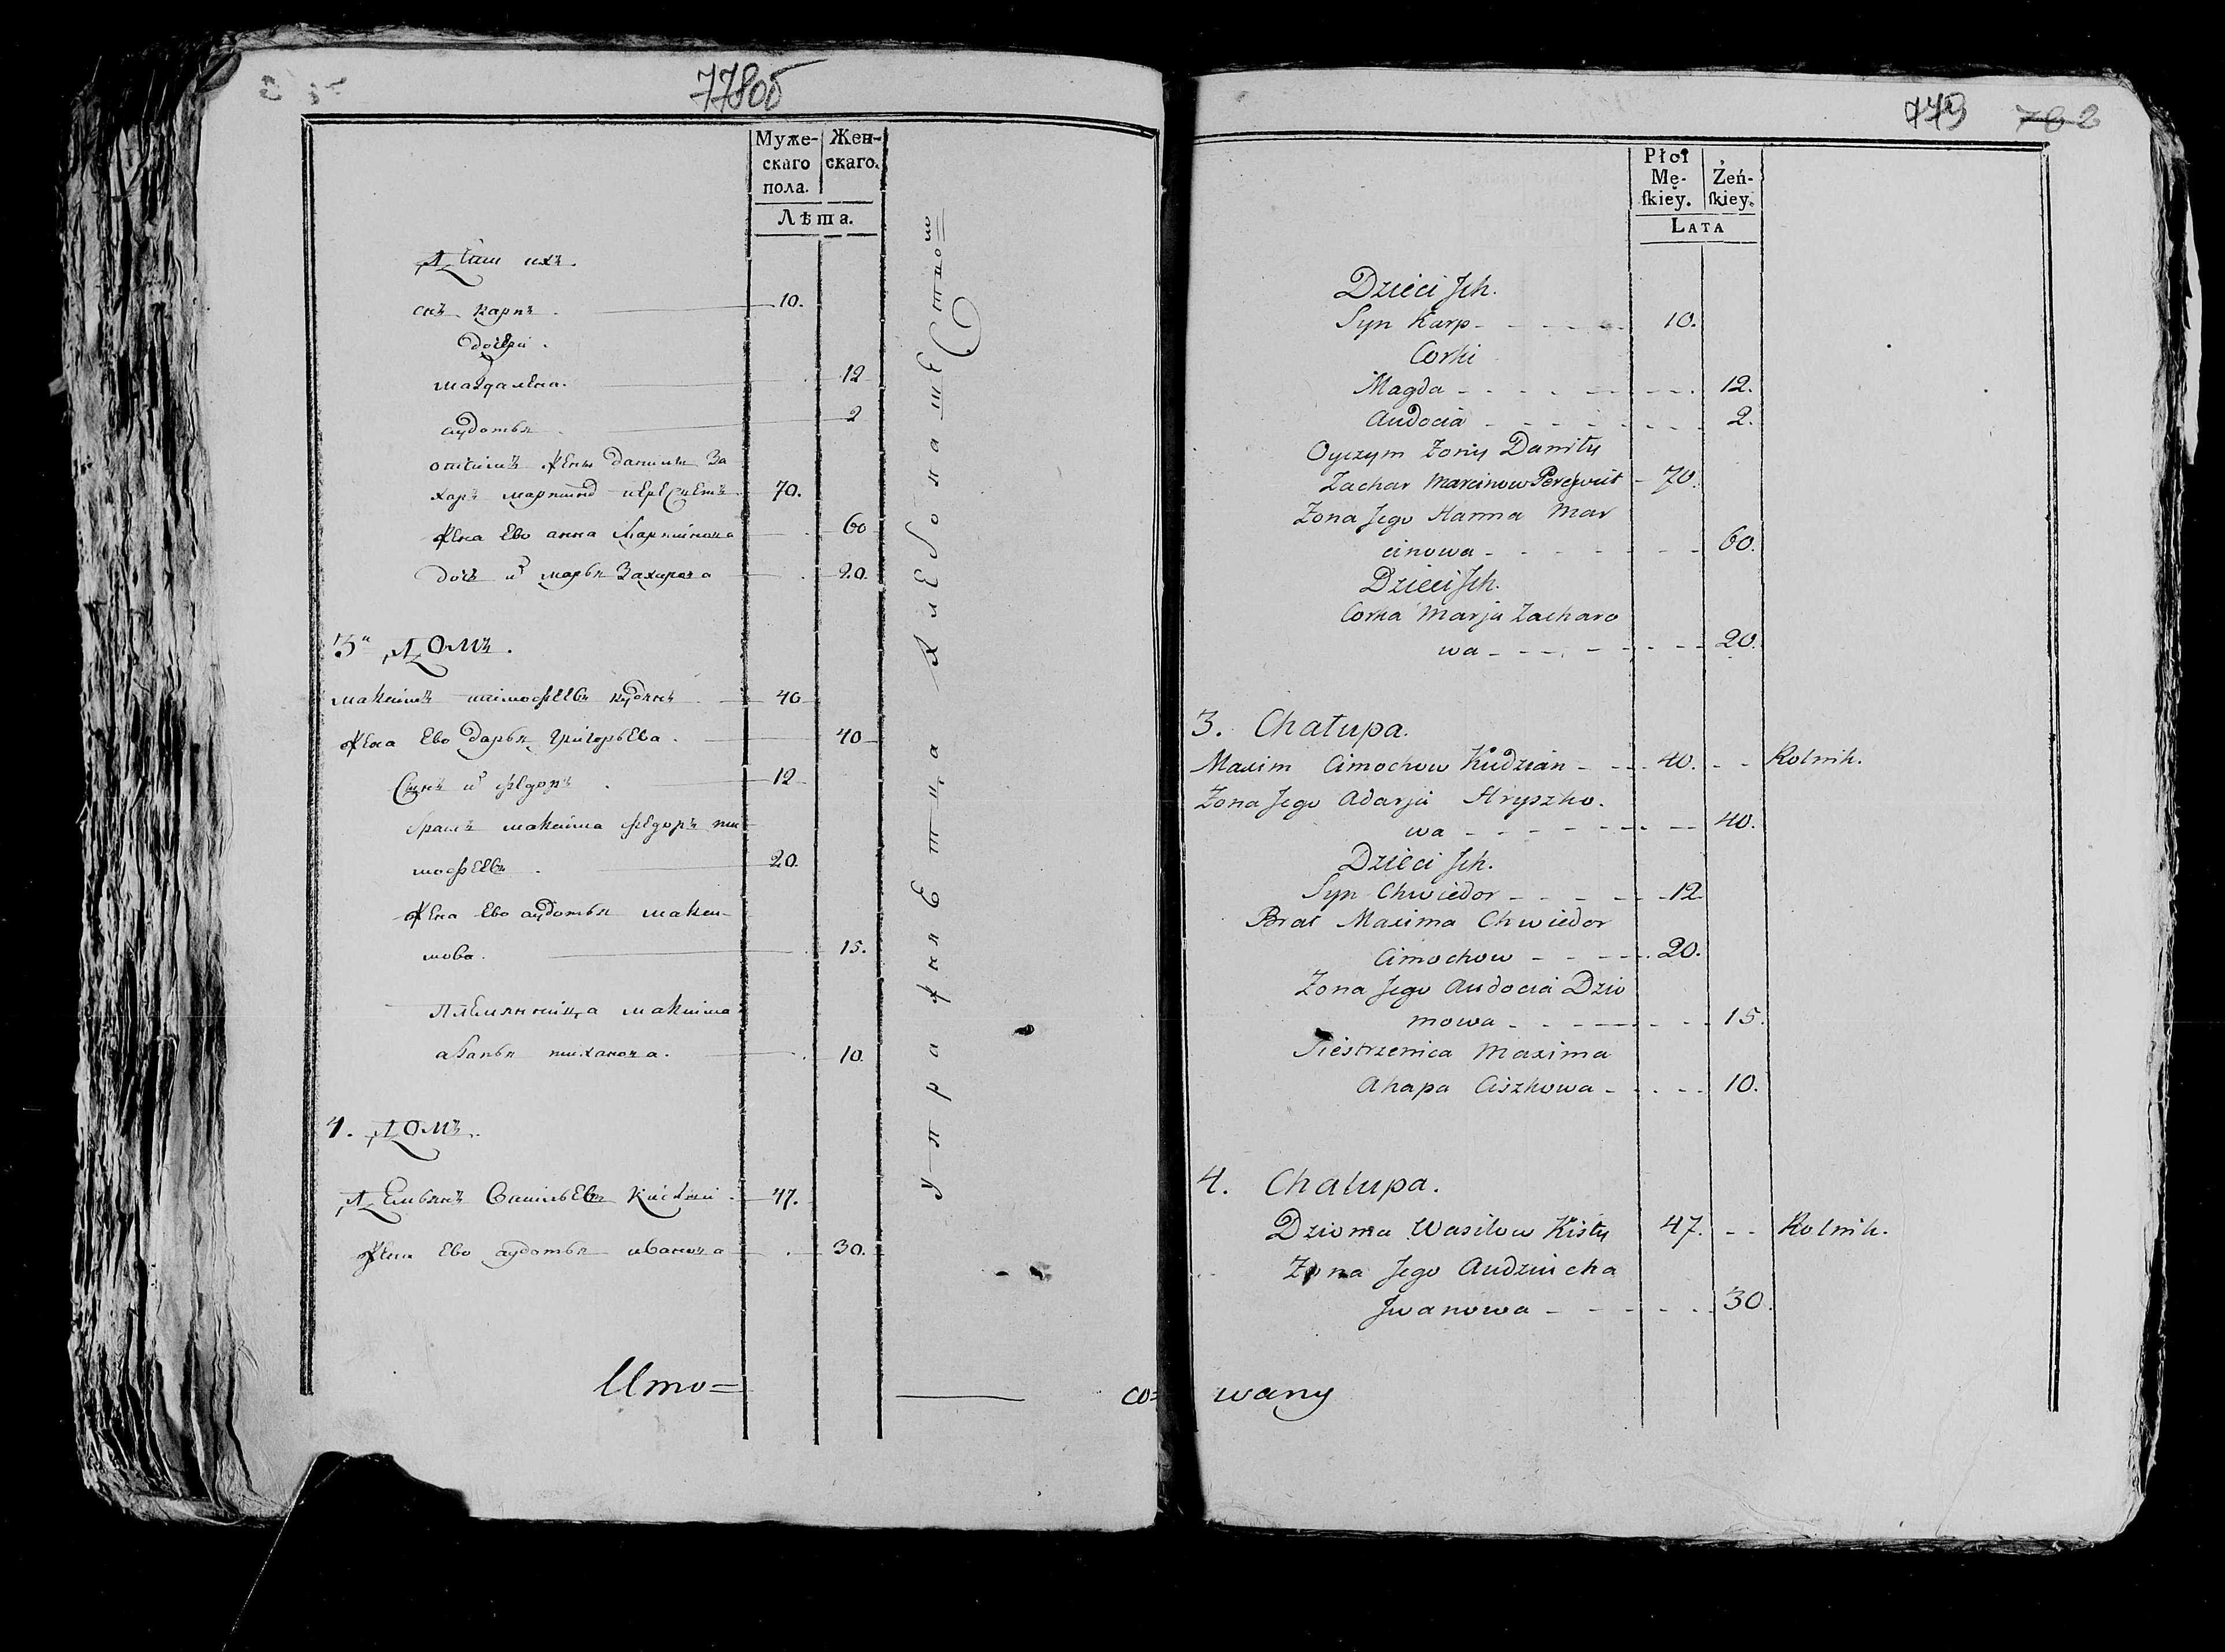 778об
Муже- Жен-
скаго скаго.
пола.
Лѣта.
Дѣти ихъ.
снъ карпъ 10.
дочери
магдалена. 12
аудотья 2
отчимъ жены данилы За
харъ мартиновъ 70.
жена Ево анна мартинова 60
дочь их марья Захарова 20.
3й домъ.
максимъ тимофѣевъ кудянъ 40
жена Ево дарья григорьева. 40
Сынъ их федоръ 12
братъ максима федоръ ти
мофѣевъ 20.
жена Ево аудотья макси-
мова. 15.
племянница максима
агапья тиханова. 10.
4. домъ.
демьянъ Васильевъ 47.
жена Ево аудотья иванова 30.
Итого=
Управляетца хлебопашЕством
со=
779 762
Płci
Mę- Żeń-
ſkiey. ſkiey.
Lata
Dzieci Jch.
Syn Karp - - - - - 10.
Corki
Magda - - - - - - - 12.
Audocia - - - - - - - 2.
Oyczym Żony Daniły
Zachar Marcinow - 70.
Żona Jego Hanna Mar
cinowa - - - - - - - 60.
Dzieci Jch.
Corka Marja Zacharo
wa - - - - - - - 20.
3. Chałupa.
Maxim Cimochow Kudzian - - - 40. - - Rolnik.
Żona Jego Adarja Hryszko.
wa - - - - - - - - 40.
Dzieci Jch.
Syn Chwiedor - - - - - - 12
Brat Maxima Chwiedor
Cimochow - - - - - 20.
Żona Jego Audocia Dzio
mowa - - - - - - - 15.
Siestrzenica Maxima
Ahapa Ciszkowa - - - - 10.
4. Chalupa.
Dzioma Wasilow Kisly 47. - - Rolnik.
Żona Jego Audziucha
Jwanowa - - - - - - 30.
wany